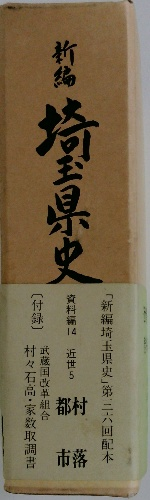 新編
埼玉県史
「新編埼玉県史」第二六回配本
資料編14 近世5
村落
都市
〔付録〕
武蔵国改革組合
村々石高・家数取調書